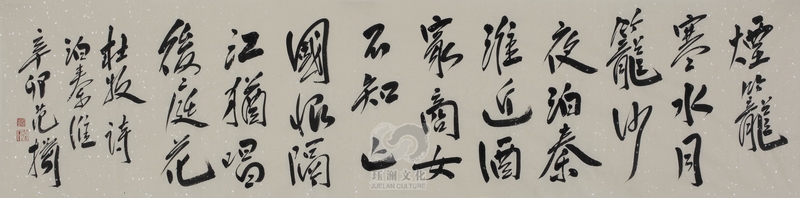 煙籠
寒水月
籠沙
夜泊秦
淮近酒
家商女
不知亡
國恨隔
江猶唱
後庭花
杜牧詩
泊秦淮
辛卯范擶
珏澜文化
JUELAN CULTURE